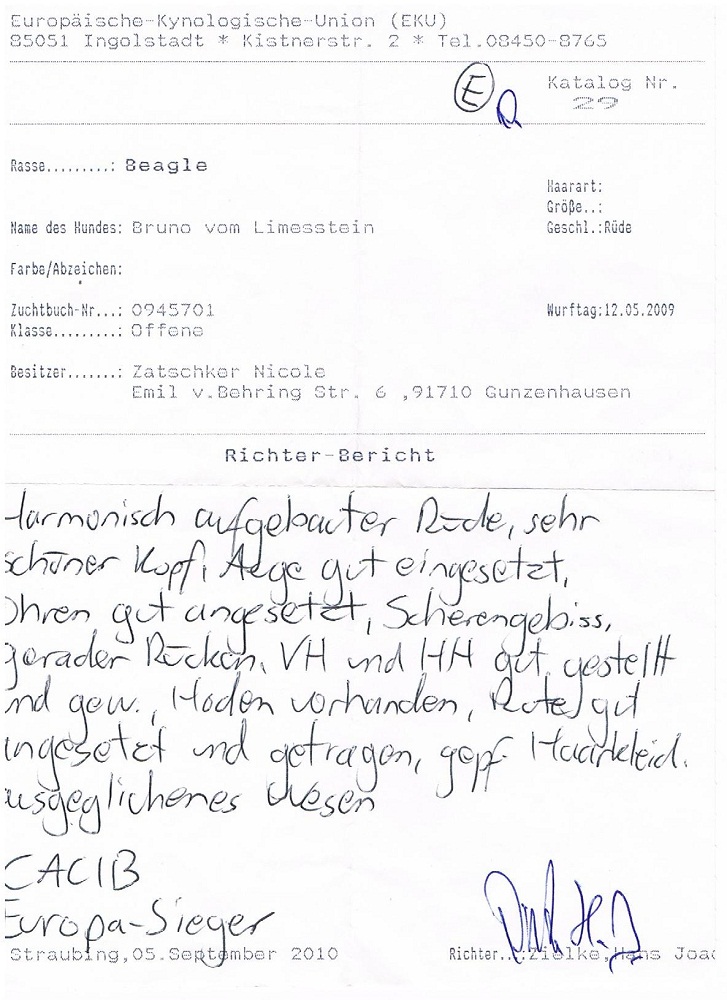 Europäische-Kynologische-Union (EKU)
85051 Ingolstadt * Kistnerstr. 2 * Tel.08450-8765
E
Katalog Nr.
29
Rasse.........: Beagle
Haarart:
Größe..:
Name des Hundes: Bruno vom Limesstein
Geschl.:Rüde
Farbe/Abzeichen:
Zuchtbuch-Nr...: 0945701
Wurftag:12.05.2009
Klasse.........: Offene
Besitzer.......: Zatschker Nicole
Emil v.Behring Str. 6 ,91710 Gunzenhausen
Richter-Bericht
Harmonisch aufgebauter Rüde, sehr
schöner Kopf, Auge gut eingesetzt,
Ohren gut angesetzt, Scherengebiss,
gerader Rücken, VH und HH gut gestellt
und gew., Hoden vorhanden, Rute gut
angesetzt und getragen, gepf. Haarkleid.
ausgeglichenes Wesen
CACIB
Europa-Sieger
Straubing,05.September 2010
Richter..:Zielke,Hans Joac